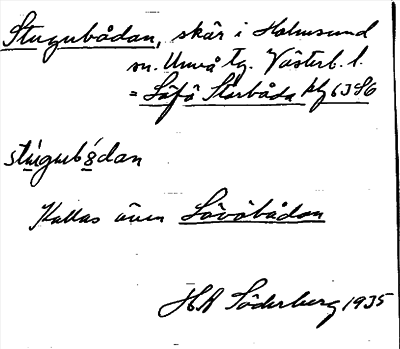 Stugubådan, skär i Holmsund
sn. Umeå tg. Västerb. l.
= Löfö Storbåda kbl 63 S6
stúgubǻdan
Kallas även Lövöbådan
H A Söderberg 1935